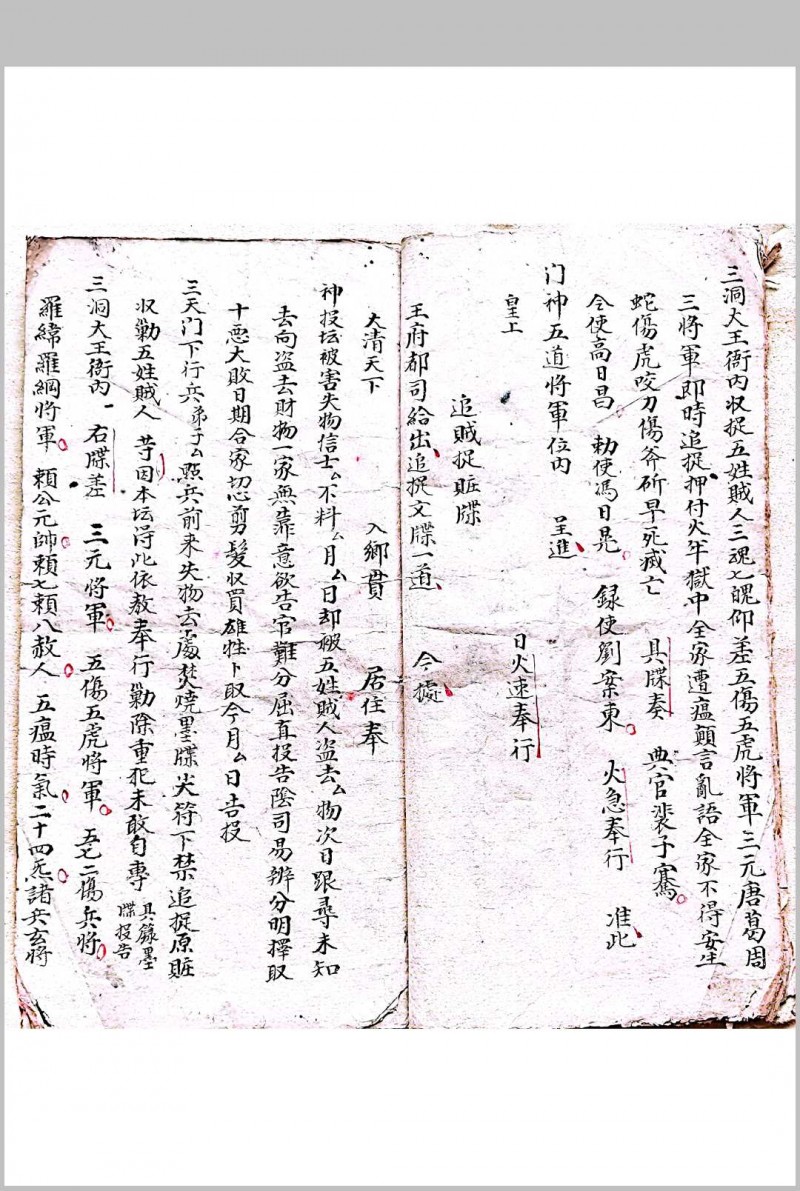 三洞大王衙內収捉五姓賊人三魂七魄仰差五傷五虎將軍三元唐葛周
三將軍即時追捉押付火牢獄中全家遭瘟顛言亂語全家不得安生
蛇傷虎咬刀傷斧斫早死滅亡 具牒奏 典官裴子騫
令使高日昌 勅使馮日晃 録使劉案東 火急奉行 准此
门神五道將軍位內 呈進
皇上 日火速奉行
追賊捉賍牒
王府都司給出追捉文牒一道 今據
大清天下 入鄉貫 居住奉
神投坛被害失物信士厶不料厶月厶日却被五姓賊人盜去厶物次日跟尋未知
去向盜去財物一家無靠意欲告官難分屈直投告陰司易辨分明擇取
十惡大敗日期合家切忌剪髮収買雄牲卜取今月厶日告投
三天门下行兵弟子厶點兵前来失物去處焚燒墨牒尖符下禁追捉原賍
収勦五姓賊人 苛因本坛淂此依教奉行勦除重犯未敢自專 具錄墨牒投告
三洞大王衙內 右牒差 三元將軍 五傷五虎將軍 五七二傷兵將
羅緯羅綱將軍 賴公元帥賴七賴八赦人 五瘟時氣二十四炁諸兵玄將